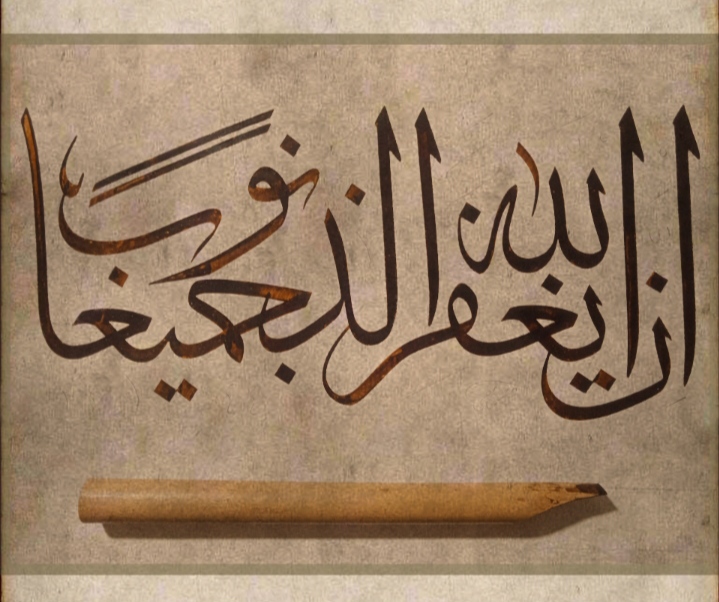 ان الله يغفر الذنوب جميعاً